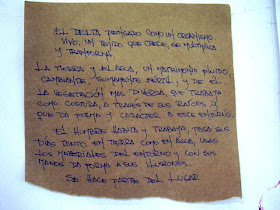 EL DELTA PENSADO COMO UN ORGANISMO
VIVO, UN TEJIDO QUE CRECE, SE MULTIPLICA
Y TRANSFORMA
LA TIERRA Y EL AGUA, UN MATRIMONIO FLUIDO,
CAMBIANTE, SUMAMENTE FERTIL, Y DE EL
LA VEGETACIÓN MAS DIVERSA, QUE TRABAJA
COMO COSTURA, A TRAVES DE SUS RAICES, Y
QUE DA FORMA Y CARACTER A ESTE ENTORNO.
EL HOMBRE HABITA Y TRABAJA, PASA SUS
DIAS TANTO EN TIERRA COMO EN AGUA, USA
LOS MATERIALES DEL ENTORNO, Y CON SUS
MANOS DA FORMA A SUS ILUSIONES.
SE HACE PARTE DEL LUGAR